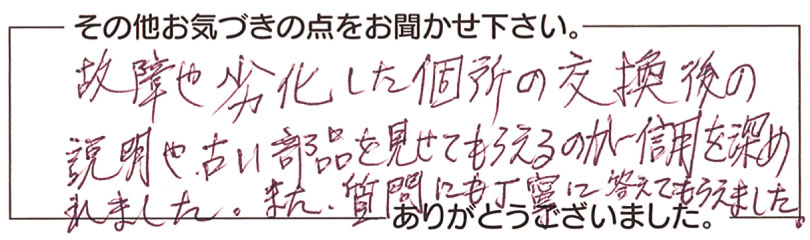 その他お気づきの点をお聞かせ下さい。
故障や劣化した個所の交換後の
説明や古い部品を見せてもらえるのが信用を深め
れました。また、質問にも丁寧に答えてもらえました。
ありがとうございました。